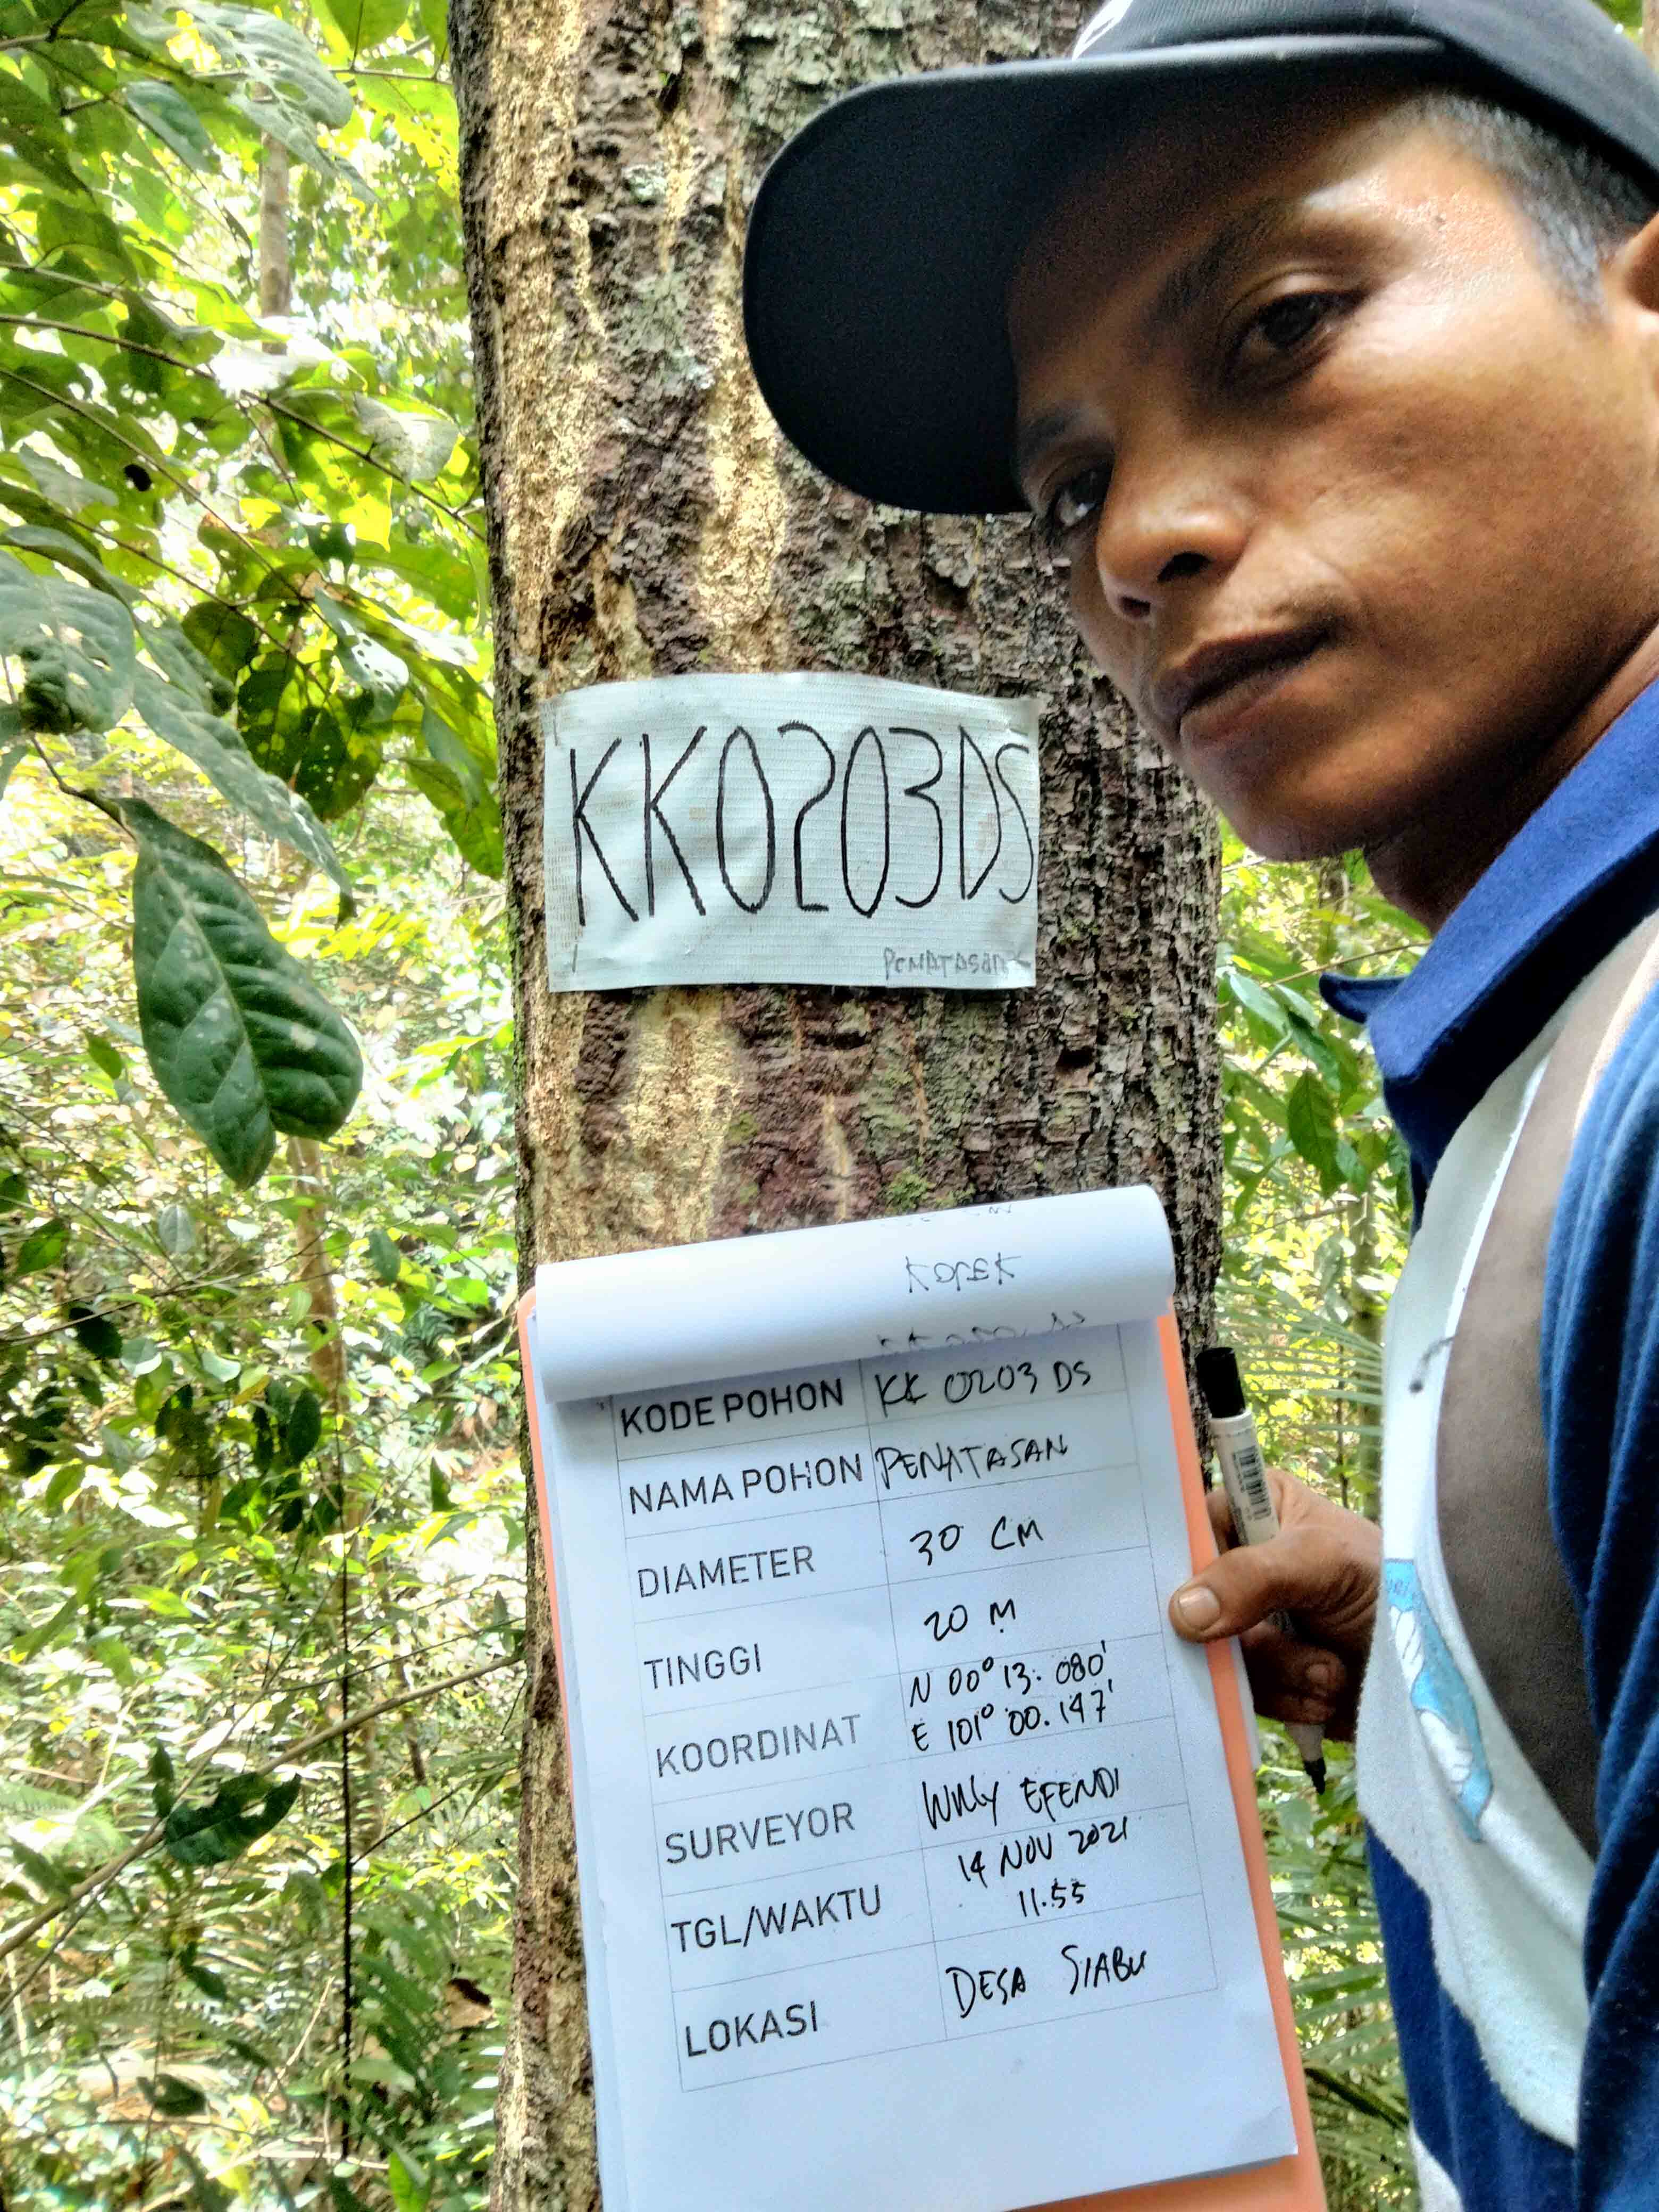 KK0203DS
PENATASAN
KODE POHON KK 0203 DS
NAMA POHON PENATASAN
DIAMETER 30 CM
TINGGI 20 M
KOORDINAT N 00° 13. 080'
E 101° 00. 147'
SURVEYOR WILLY EFENDI
TGL/WAKTU 14 NOV 2021
11.55
LOKASI DESA SIABU